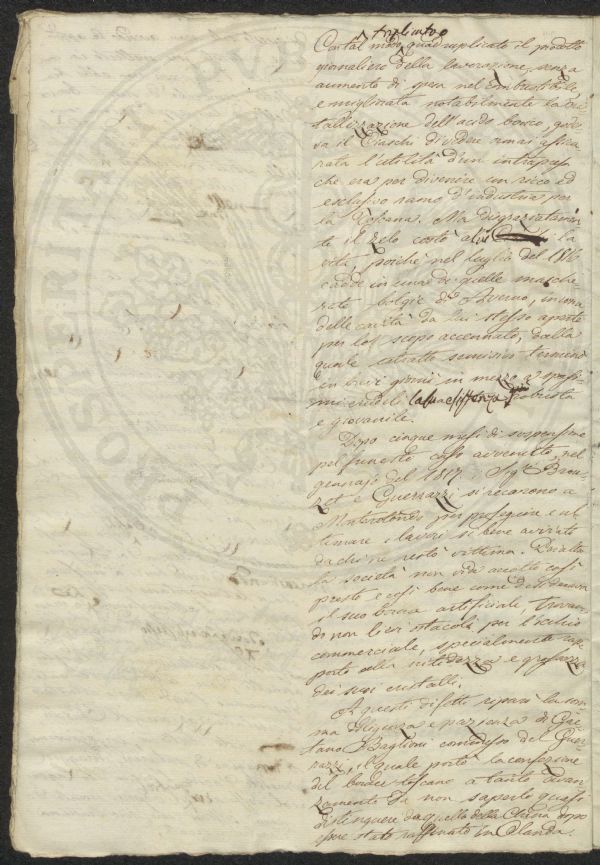 triplicato
Con tal modo quadruplicato il prodotto
giornaliero della lavorazione, senza
aumento di spesa nel combustibile
e migliorata notabilmente la cri
stallizzazione dell'acido borico, gode
va il Ciaschi di vedere omai assicu
rata l'utilità d'un intrapresa
che era per divenire un ricco ed
esclusivo ramo d'industria per
la Toscana. Ma disgraziatamen
te il zelo costò a lui la
vita, poichè nel luglio del 1816
cadde in una di quelle masche
rate bolge d'Averno, in una
delle cavità da lui stesso aperte
per lo scopo accennato, dalla
quale estratto semivivo terminò
in brevi giorni in mezzo a spasi
mi crudeli la sua esistenza robusta
e giovanile.
Dopo cinque mesi di sospensione
pel funesto caso avvenuto, nel
gennajo del 1817 Sigri Brou
zet e Guerrazzi si recarono a
Monterotondo per proseguire e ul
timare i lavori sì bene avviati
da chi ne restò vittima.
la società non vide accolto così
presto e così bene come desiderava
il suo borace artificiale, trovan
do non lievi ostacoli per l'esito
commerciale, specialmente rap
porto alla nitidezza e grossezza
dei suoi cristalli.
A questi difetti riparò la som
ma diligenza e pazienza di Gae
tano Baglioni commesso del Guer
razzi, il quale portò la confezione
del borace toscano a tanto avan
zamento da non saperlo quasi
distinguere da quello della China dopo
essere stato raffinato in Olanda.